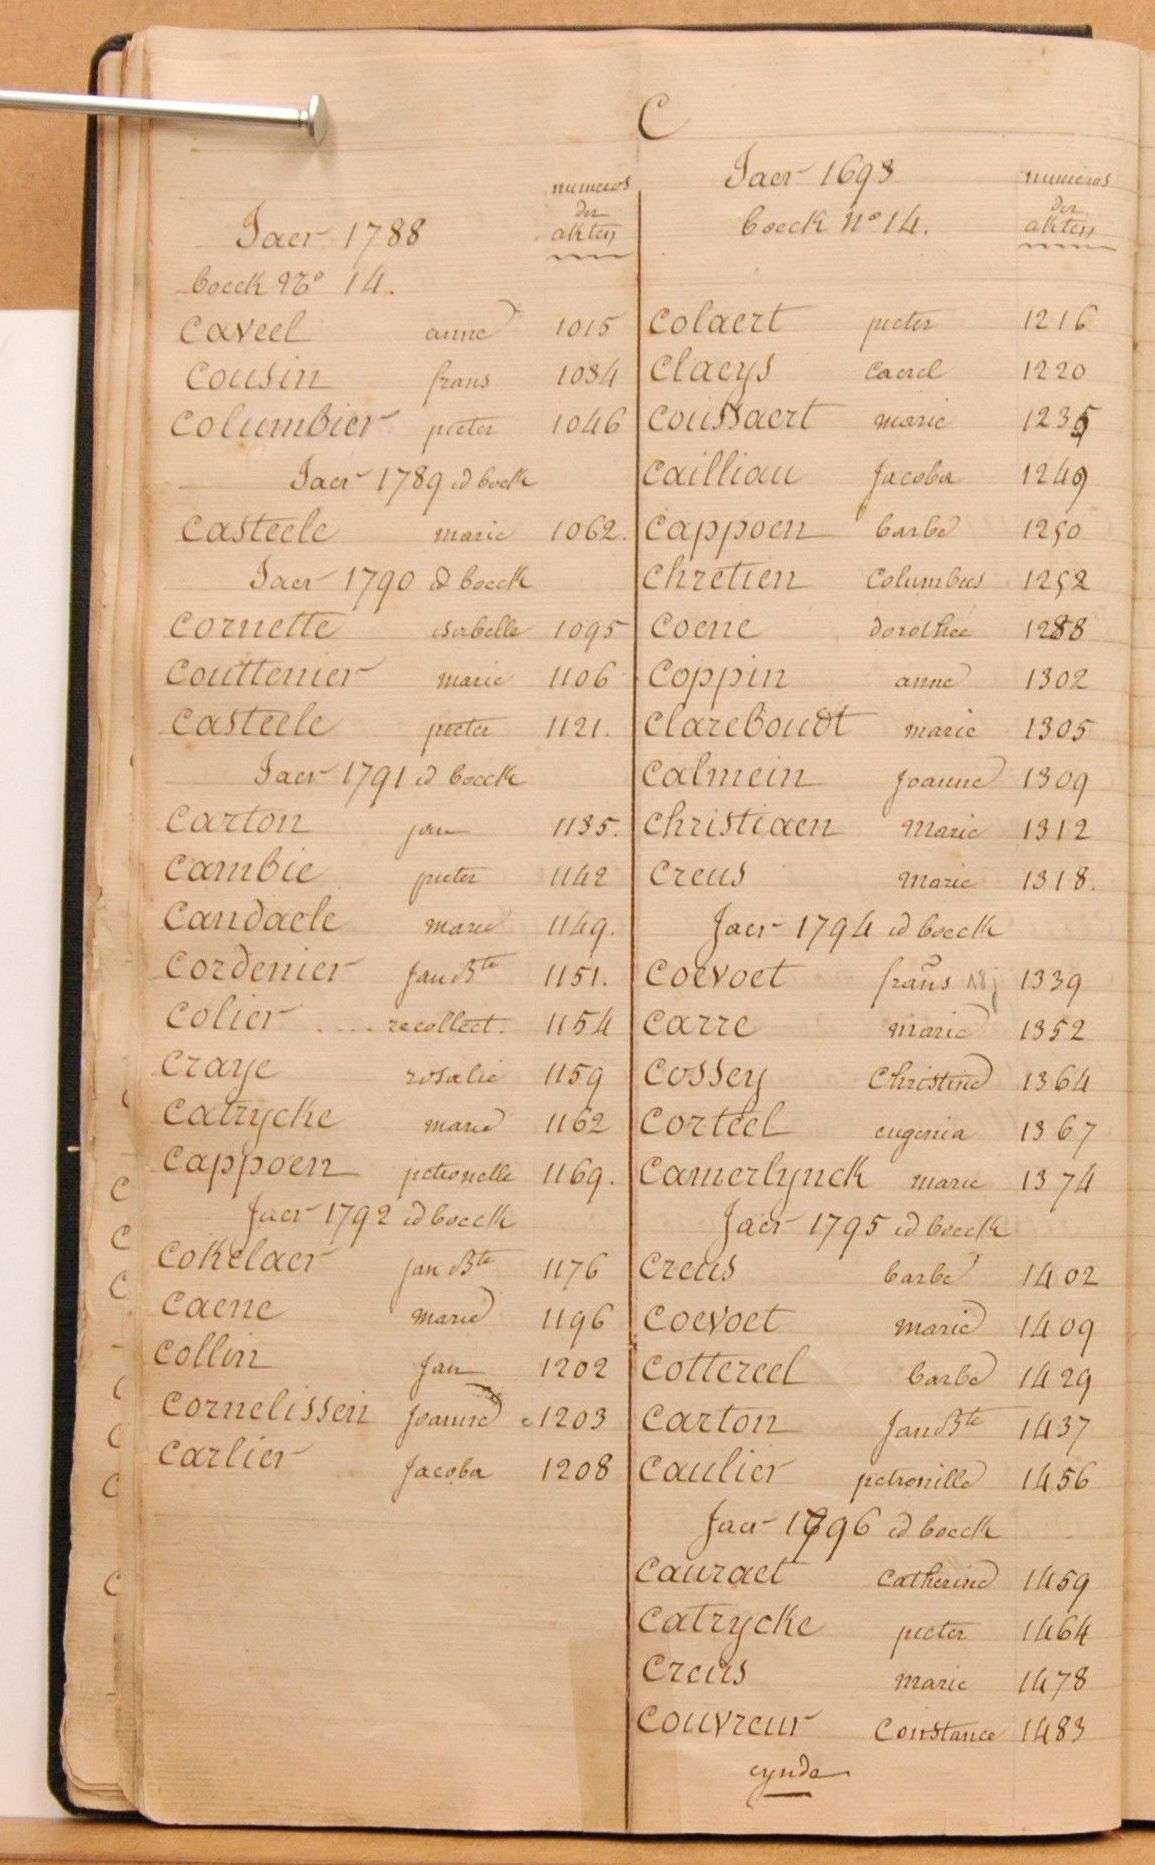 C
numeros
der
Jaer 1788 akten
boeck No 14.
Caveel anne 1015
Cousin frans 1034
Columbier pieter 1046
Jaer 1789 id boeck
Casteele marie 1062.
Jaer 1790 id boeck
Cornette isabelle 1095
Couttenier marie 1106
Casteele pieter 1121.
Jaer 1791 id boeck
Carton jan 1135.
Cambie pieter 1142
Candaele marie 1149.
Cordenier Jan Bte 1151.
Colier .... recollect. 1154
Craye rosalie 1159
Catrycke marie 1162
Cappoen petronelle 1169.
Jaer 1792 id boeck
Cokelaer jan Bte 1176
Caene marie 1196
Collin Jan 1202
Cornelissen Joanne 1203
Carlier Jacoba 1208
Jaer 1693 numeros
der
boeck No 14. akten
Colaert pieter 1216
Claeys Caerel 1220
Coussaert marie 1235
Cailliau Jacoba 1249
Cappoen barbe 1250
Chretien Columbus 1252
Coene dorothée 1288
Coppin anne 1302
Clareboudt marie 1305
Calmein Joanne 1309
Christiaen Marie 1312
Creus Marie 1318.
Jaer 1794 id boeck
Coevoet frans 1339
Carre marie 1352
Cossey Christine 1364
Corteel eugenia 1367
Camerlynck marie 1374
Jaer 1795 id boeck
Creus barbe 1402
Coevoet marie 1409
Cottereel barbe 1429
Carton Jan Bte 1437
Caulier petronille 1456
Jaer 1796 id boeck
Cauraet Catherine 1459
Catrycke pieter 1464
Creus marie 1478
Couvreur Constance 1483
eynde